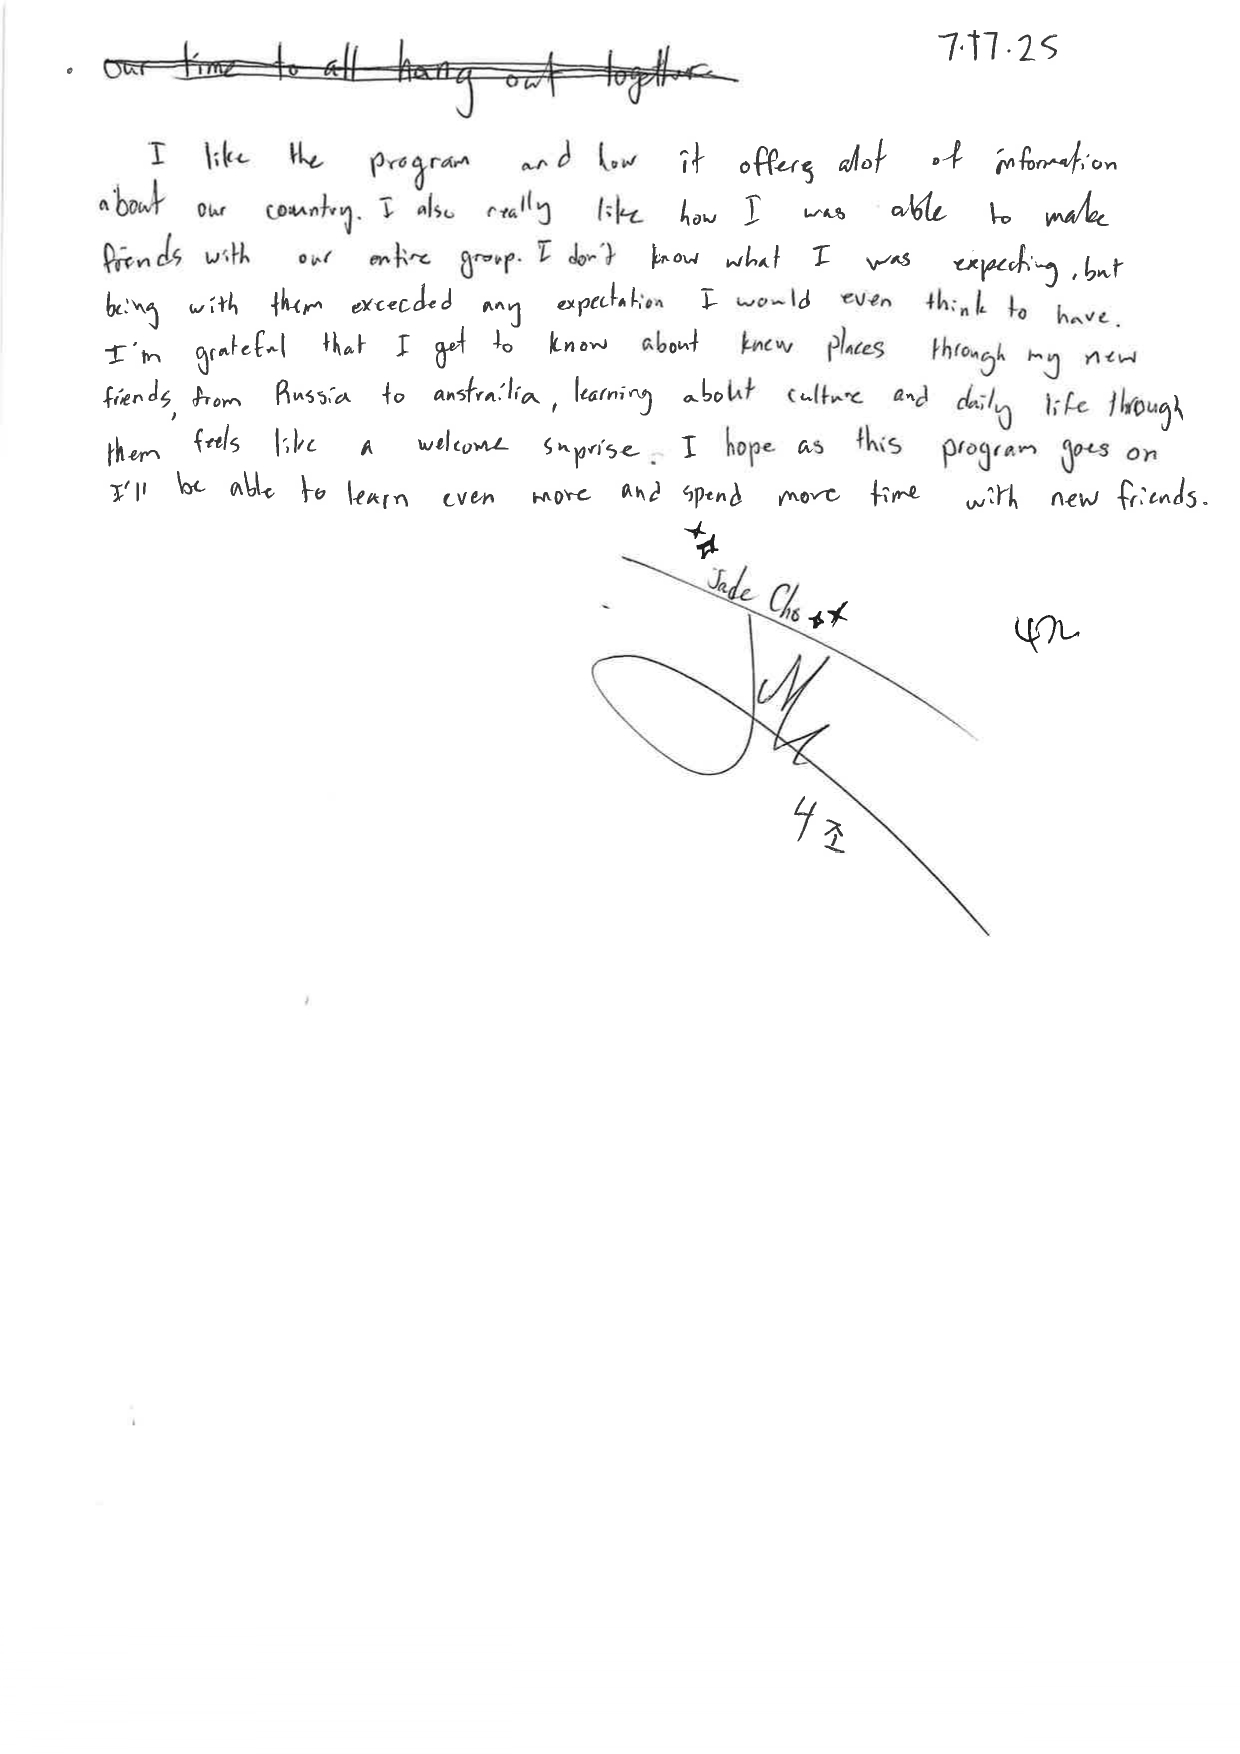 7.17.25
our time to all hang out together
I like the program and how it offers alot of information
about our country. I also really like how I was able to make
friends with our entire group. I don't know what I was expecting, but
being with them exceeded any expectation I would even think to have.
I'm grateful that I get to know about knew places through my new
friends, from Russia to austrailia, learning about culture and daily life through
them feels like a welcome suprise. I hope as this program goes on
I'll be able to learn even more and spend more time with new friends.
Jade Cho
4조